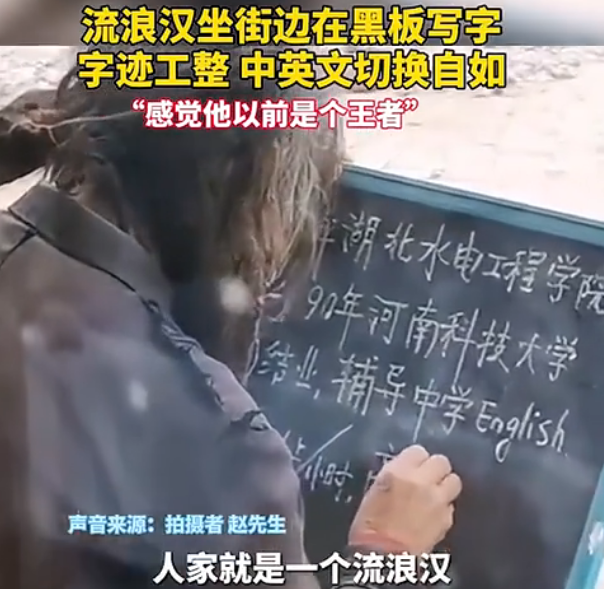 流浪汉坐街边在黑板写字
字迹工整 中英文切换自如
“感觉他以前是个王者”
湖北水电工程学院
90年河南科技大学
结业,辅导中学English
/小时,
声音来源：拍摄者 赵先生
人家就是一个流浪汉